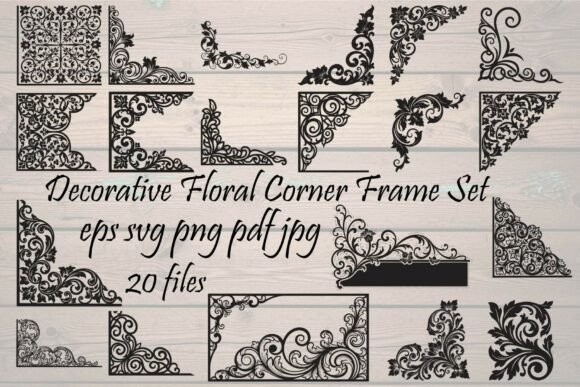 Decorative Floral Corner Frame Set
eps svg png pdf jpg
20 files